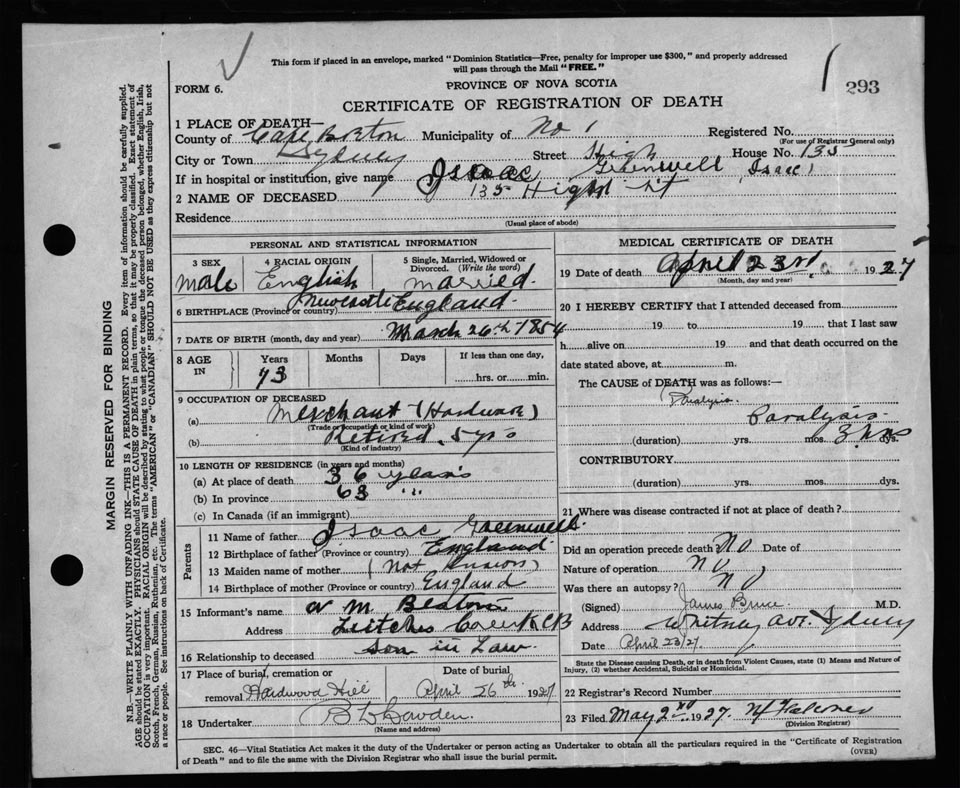 This form if placed in an envelope, marked "Dominion Statistics—Free, penalty for improper use $300," and properly addressed
will pass through the Mail "FREE."
FORM 6.
PROVINCE OF NOVA SCOTIA
293
CERTIFICATE OF REGISTRATION OF DEATH
1 PLACE OF DEATH—
County of Cape Breton Municipality of No 1 Registered No.
(For use of Registrar General only)
City or Town Sydney Street High House No. 135
If in hospital or institution, give name
2 NAME OF DECEASED Isaac Greenwell (Isaac)
135 High St
Residence
(Usual place of abode)
PERSONAL AND STATISTICAL INFORMATION
3 SEX male
4 RACIAL ORIGIN English
5 Single, Married, Widowed or Divorced. (Write the word) married.
6 BIRTHPLACE (Province or country) Newcastle England.
7 DATE OF BIRTH (month, day and year) March 26th 1854
8 AGE IN Years 73 Months Days If less than one day, hrs. or min.
9 OCCUPATION OF DECEASED
(a) Merchant (Hardware)
(Trade or occupation or kind of work)
(b) Retired 5 yrs
(Kind of industry)
10 LENGTH OF RESIDENCE (in years and months)
(a) At place of death 36 years
(b) In province 63 "
(c) In Canada (if an immigrant)
Parents
11 Name of father Isaac Greenwell
12 Birthplace of father (Province or country) England
13 Maiden name of mother (Not Known)
14 Birthplace of mother (Province or country) England
15 Informant's name M. Beaton
Address Leitches Creek CB
16 Relationship to deceased Son in Law
17 Place of burial, cremation or removal Hardwood Hill
Date of burial April 26th 1927
18 Undertaker
(Name and address)
MEDICAL CERTIFICATE OF DEATH
19 Date of death April 23rd 1927
(Month, day and year)
20 I HEREBY CERTIFY that I attended deceased from
19 to 19 that I last saw
h alive on 19 and that death occurred on the
date stated above, at m.
The CAUSE of DEATH was as follows:—
Paralysis.
Paralysis.
(duration) yrs. mos. 3 dys.
CONTRIBUTORY
(duration) yrs. mos. dys.
21 Where was disease contracted if not at place of death?
Did an operation precede death No Date of
Nature of operation No
Was there an autopsy? No
(Signed) James Bruce M.D.
Address Whitney Ave. Sydney
Date April 23/27
State the Disease causing Death, or in death from Violent Causes, state (1) Means and Nature of
Injury, (2) whether Accidental, Suicidal or Homicidal.
22 Registrar's Record Number
23 Filed May 2nd 1927.
(Division Registrar)
SEC. 46—Vital Statistics Act makes it the duty of the Undertaker or person acting as Undertaker to obtain all the particulars required in the "Certificate of Registration
of Death" and to file the same with the Division Registrar who shall issue the burial permit.
(OVER)
MARGIN RESERVED FOR BINDING
N.B.—WRITE PLAINLY WITH UNFADING INK—THIS IS A PERMANENT RECORD. Every item of information should be carefully supplied.
AGE should be stated EXACTLY. PHYSICIANS should STATE CAUSE OF DEATH in plain terms, so that it may be properly classified. Exact statement of
OCCUPATION is very important. RACIAL ORIGIN will be described by stating to what people or tongue the deceased person belonged, whether English, Irish,
Scotch, French, German, Russian, Ruthenian, etc. The terms "AMERICAN" or "CANADIAN" SHOULD NOT BE USED as they express citizenship but not
a race or people. See instructions on back of Certificate.